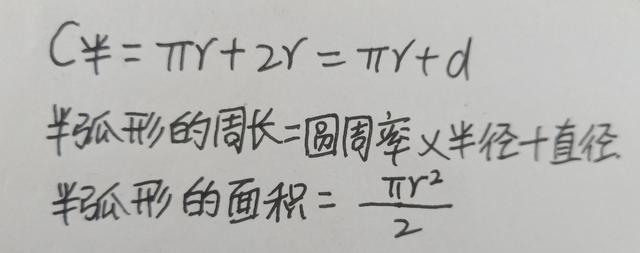 C半=πr+2r=πr+d
半弧形的周长=圆周率×半径+直径
半弧形的面积=πr²/2